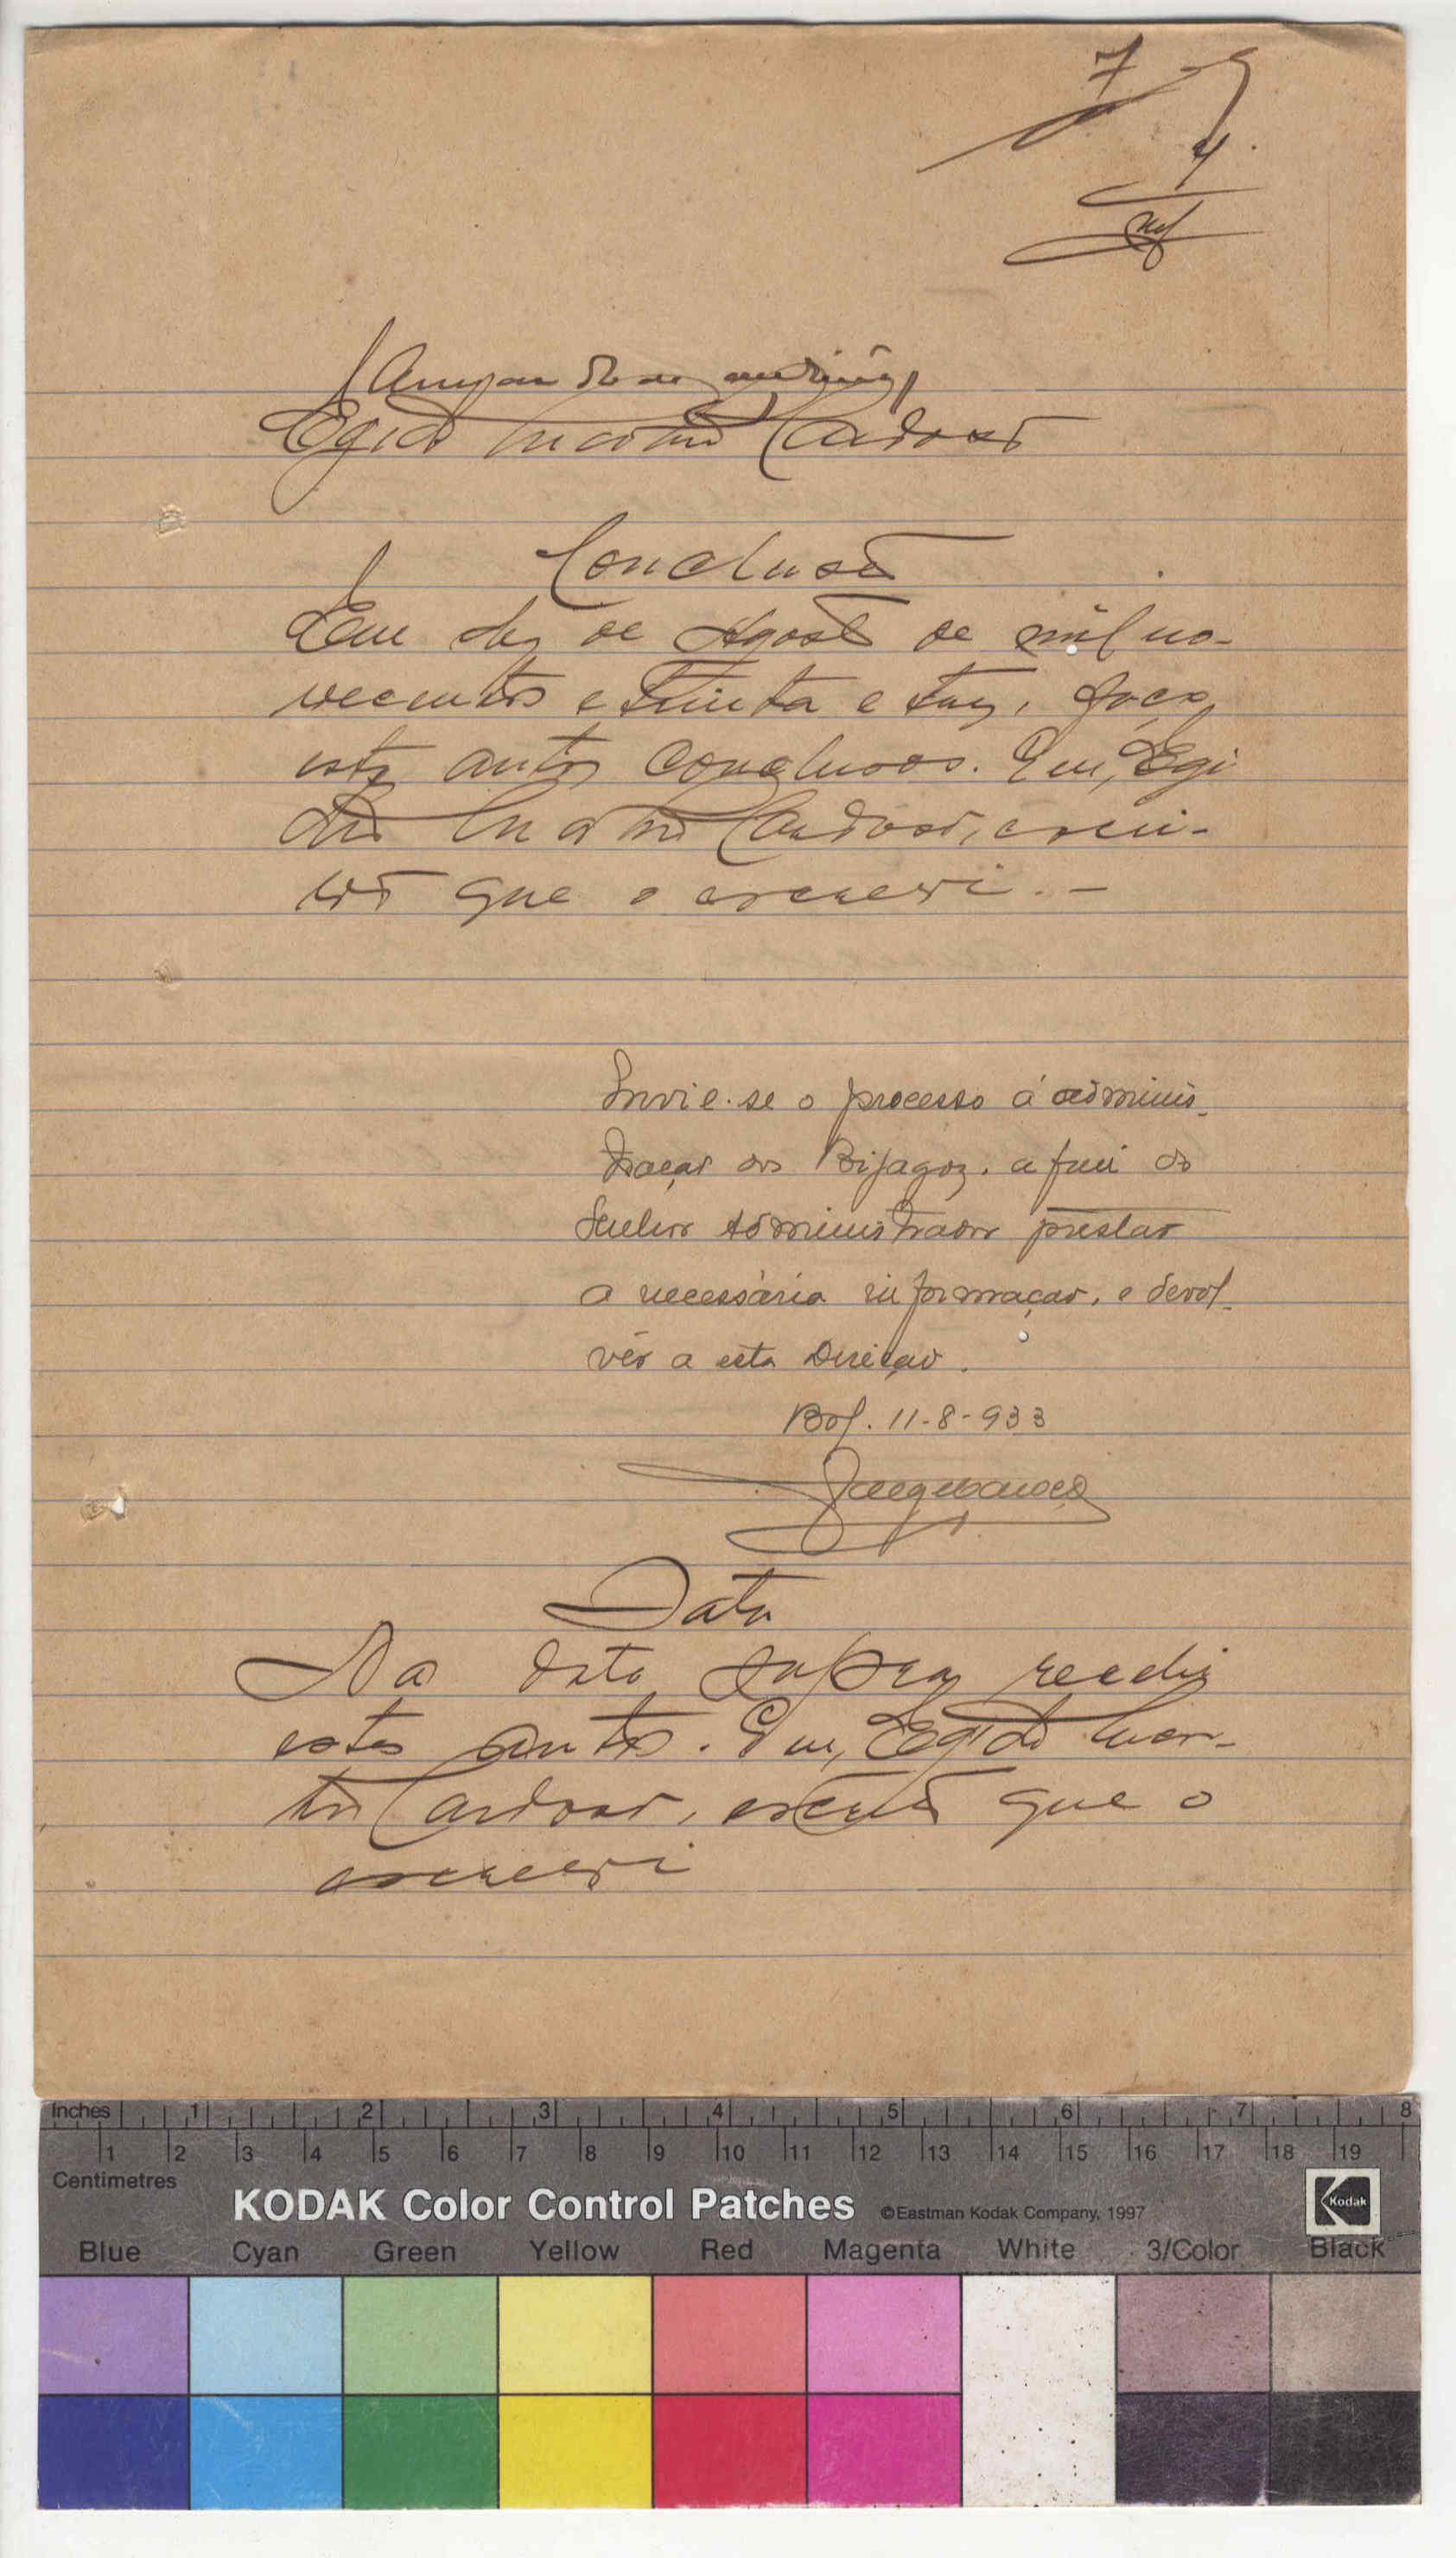 7
4.
Egidio Cardoso
Conclusão
Em dez de Agosto de mil no-
vecentos e trinta e tres, faço
estes autos conclusos. Eu, Egi
dio Cardoso, escri-
vão que o escrevi. —
Envie-se o processo á adminis-
tração dos Bijagoz. a fim do
Senhor Administrador prestar
a necessária informação, e devol-
vêr a esta Direcção.
Bol. 11-8-933
Data
Na data supra recebi
estes autos. Eu, Egidio
Cardoso, escrivão que o
escrevi
Inches 1 2 3 4 5 6 7 8
1 2 3 4 5 6 7 8 9 10 11 12 13 14 15 16 17 18 19
Centimetres
KODAK Color Control Patches ©Eastman Kodak Company, 1997 Kodak
Blue Cyan Green Yellow Red Magenta White 3/Color Black